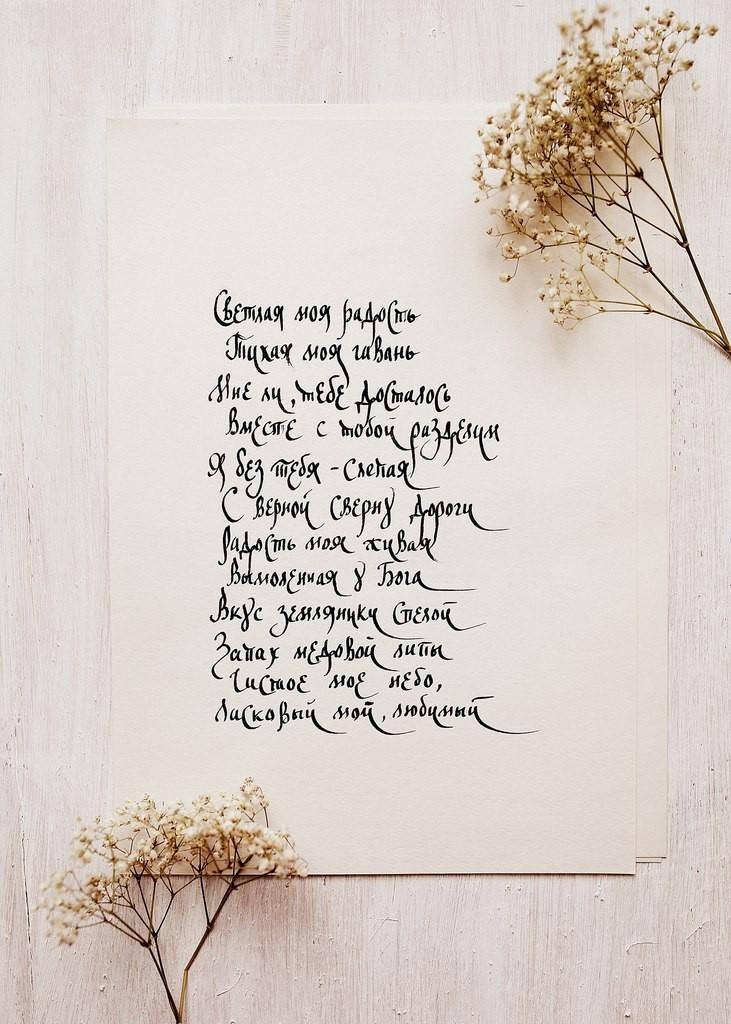 Светлая моя радость
Тихая моя гавань
Мне ли, тебе досталось
Вместе с тобой разделим
Я без тебя - слепая
С верной сверну дороги
Радость моя живая
Вымоленная у Бога
Вкус земляники спелой
Запах медовой липы
Чистое мое небо,
Ласковый мой, любимый